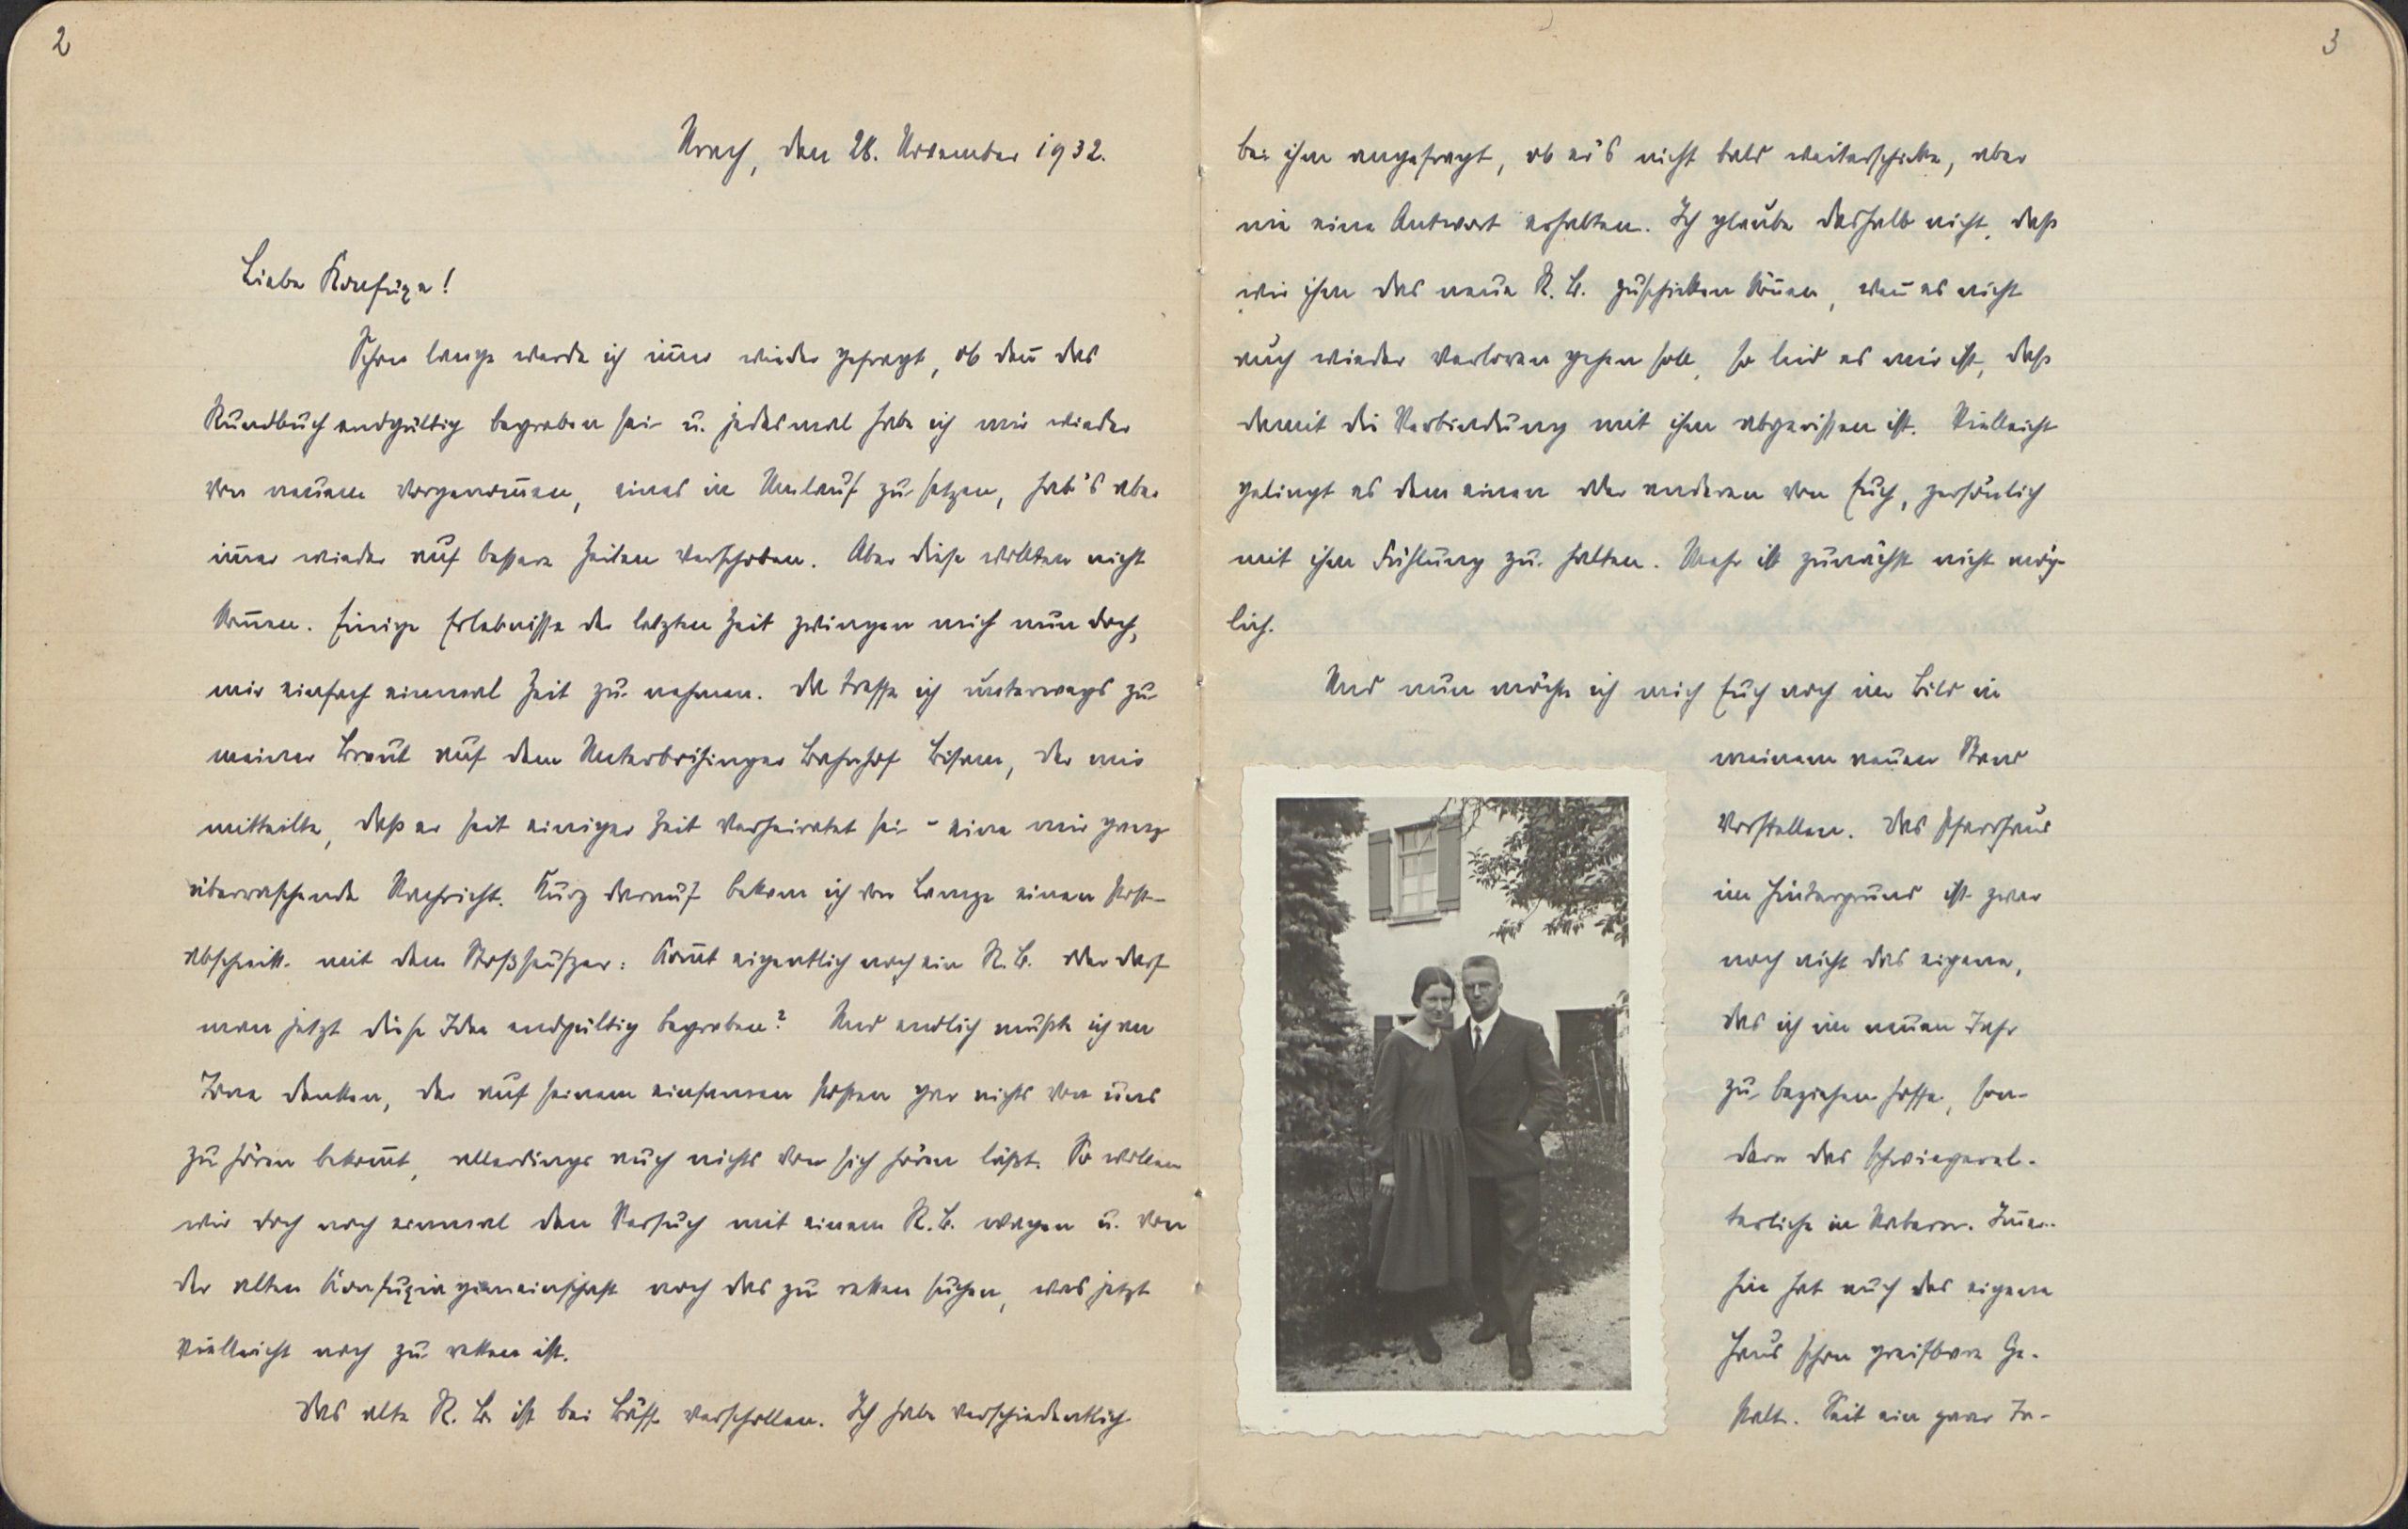 2
Urach, den 28. November 1932.
Liebe Konfuxe!
Schon lange werde ich im̄er wieder gefragt, ob den̄ das
Rundbuch endgültig begraben sei u. jedesmal habe ich mir wieder
von neuem vorgenom̄en, eines in Umlauf zu setzen, hab's aber
im̄er wieder auf bessere Zeiten verschoben. Aber diese wollten nicht
kom̄en. Einige Erlebnisse der letzten Zeit zwingen mich nun doch,
mir einfach einmal Zeit zu nehmen. Da treffe ich unterwegs zu
meiner Braut auf dem Unterböihinger Bahnhof Bihom, der mir
mitteilte, daß er seit einiger Zeit verheiratet sei - eine mir ganz
überraschende Nachricht. Kurz darauf bekam ich von Lampe einen Post-
abschnitt mit dem Stoßseufzer: Kom̄t eigentlich noch ein R.B. oder darf
man jetzt diese Idee endgültig begraben? Und endlich mußte ich an
denken, der auf seinem einsamen Posten gar nichts von uns
zu hören bekom̄t, allerdings auch nichts von sich hören läßt. So wollen
wir doch noch einmal den Versuch mit einem R.B. wagen u. von
der alten Konfuxiagemeinschaft noch das zu retten suchen, was jetzt
vielleicht noch zu retten ist.
Das alte R.B. ist bei verschollen. Ich habe verschiedentlich
3
bei ihm angefragt, ob er's nicht bald weiterschicke, aber
nie eine Antwort erhalten. Ich glaube deshalb nicht, daß
wir ihm das neue R.B. zuschicken kön̄en, wen̄ es nicht
auch wieder verloren gehen soll, so leid es mir ist, daß
damit die Verbindung mit ihm abgerissen ist. Vielleicht
gelingt es dem einen oder anderen von Euch, persönlich
mit ihm Fühlung zu halten. Mehr ist zunächst nicht mög-
lich.
Und nun möchte ich mich Euch noch im Bild in
meinem neuen Stand
vorstellen. Das Pfarrhaus
im Hintergrund ist zwar
noch nicht das eigene,
das ich im neuen Jahr
zu beziehen hoffe, son-
dern das schwiegerel-
terliche in Nabern. Im̄er-
hin hat auch das eigene
Haus schon greifbare Ge-
stalt. Seit ein paar Ta-